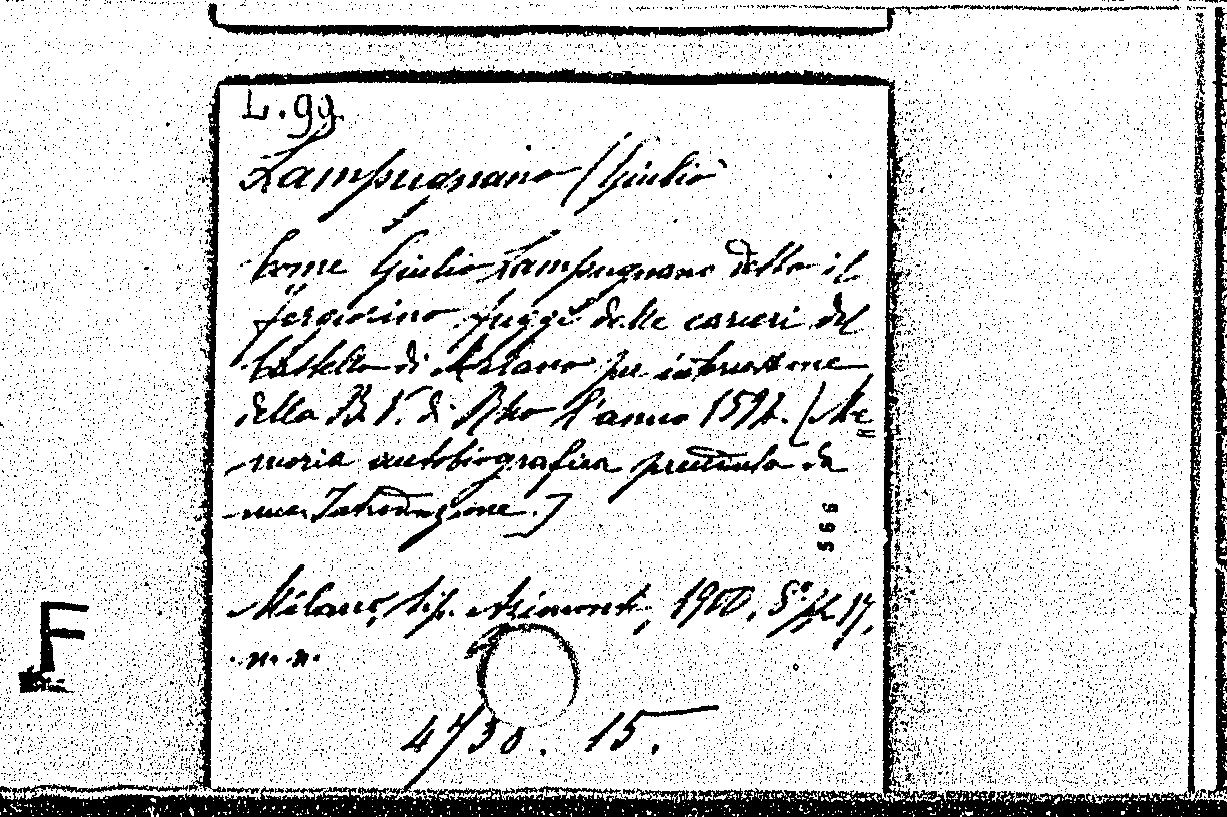 L. 99.
Lampugnano (Giulio)
Come Giulio Lampugnano detto il
fuggì dalle carceri del
Castello di Milano per intercessione
della B. V. di Rho l'anno 159 . [Me=
moria autobiografica preceduta da
una Introduzione.]
Milano, tip. 1900, 8° pp. 17,
n. n.
4730. 15.
566
F